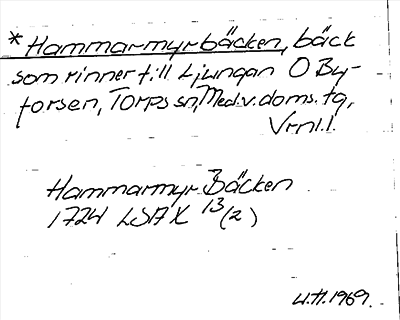 * Hammarmyrbäcken, bäck
som rinner till Ljungan O By-
forsen, Torps sn, Med.v.doms.tg,
Vrnl.l.
Hammarmyr Bäcken
1724 LSA X 13/(2)
1969.